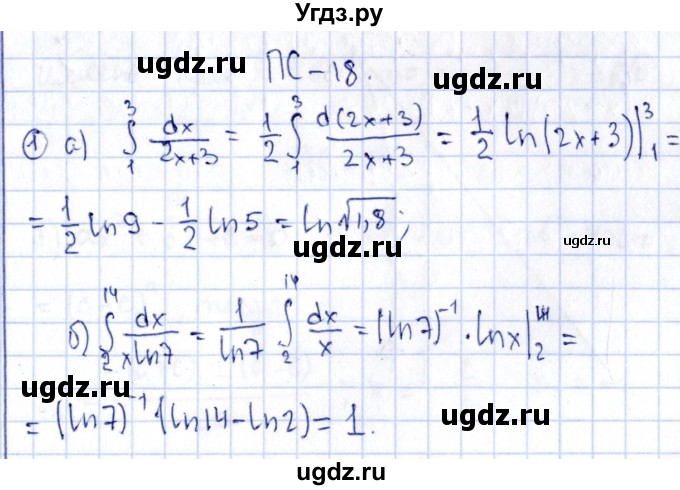 Угдз.ру
ugdz.ru
ugdz.ru ПС-18. ugdz.ru
① а) ∫₁³ dx/(2x+3) = 1/2 ∫₁³ d(2x+3)/(2x+3) = 1/2 ln(2x+3)|₁³ =
= 1/2 ln9 - 1/2 ln5 = ln√1,8;
ugdz.ru
ugdz.ru
б) ∫₂¹⁴ dx/(x ln7) = 1/ln7 ∫₂¹⁴ dx/x = (ln7)⁻¹ · lnx|₂¹⁴ =
ugdz.ru ugdz.ru
= (ln7)⁻¹ · (ln14 - ln2) = 1.
ugdz.ru
ugdz.ru